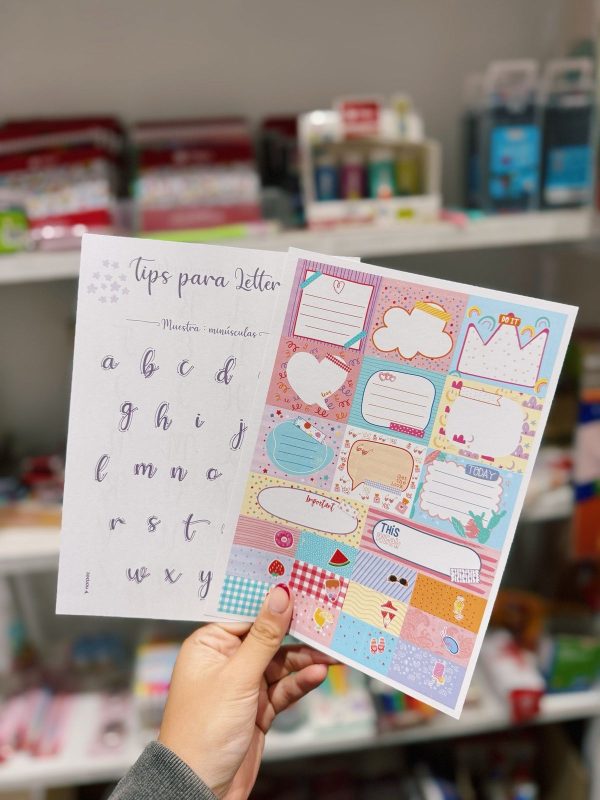 Tips para Letter
Muestra : minúsculas
a b c d
g h i j
l m n o
r s t
w x y
DO IT
TODAY
Important
THIS